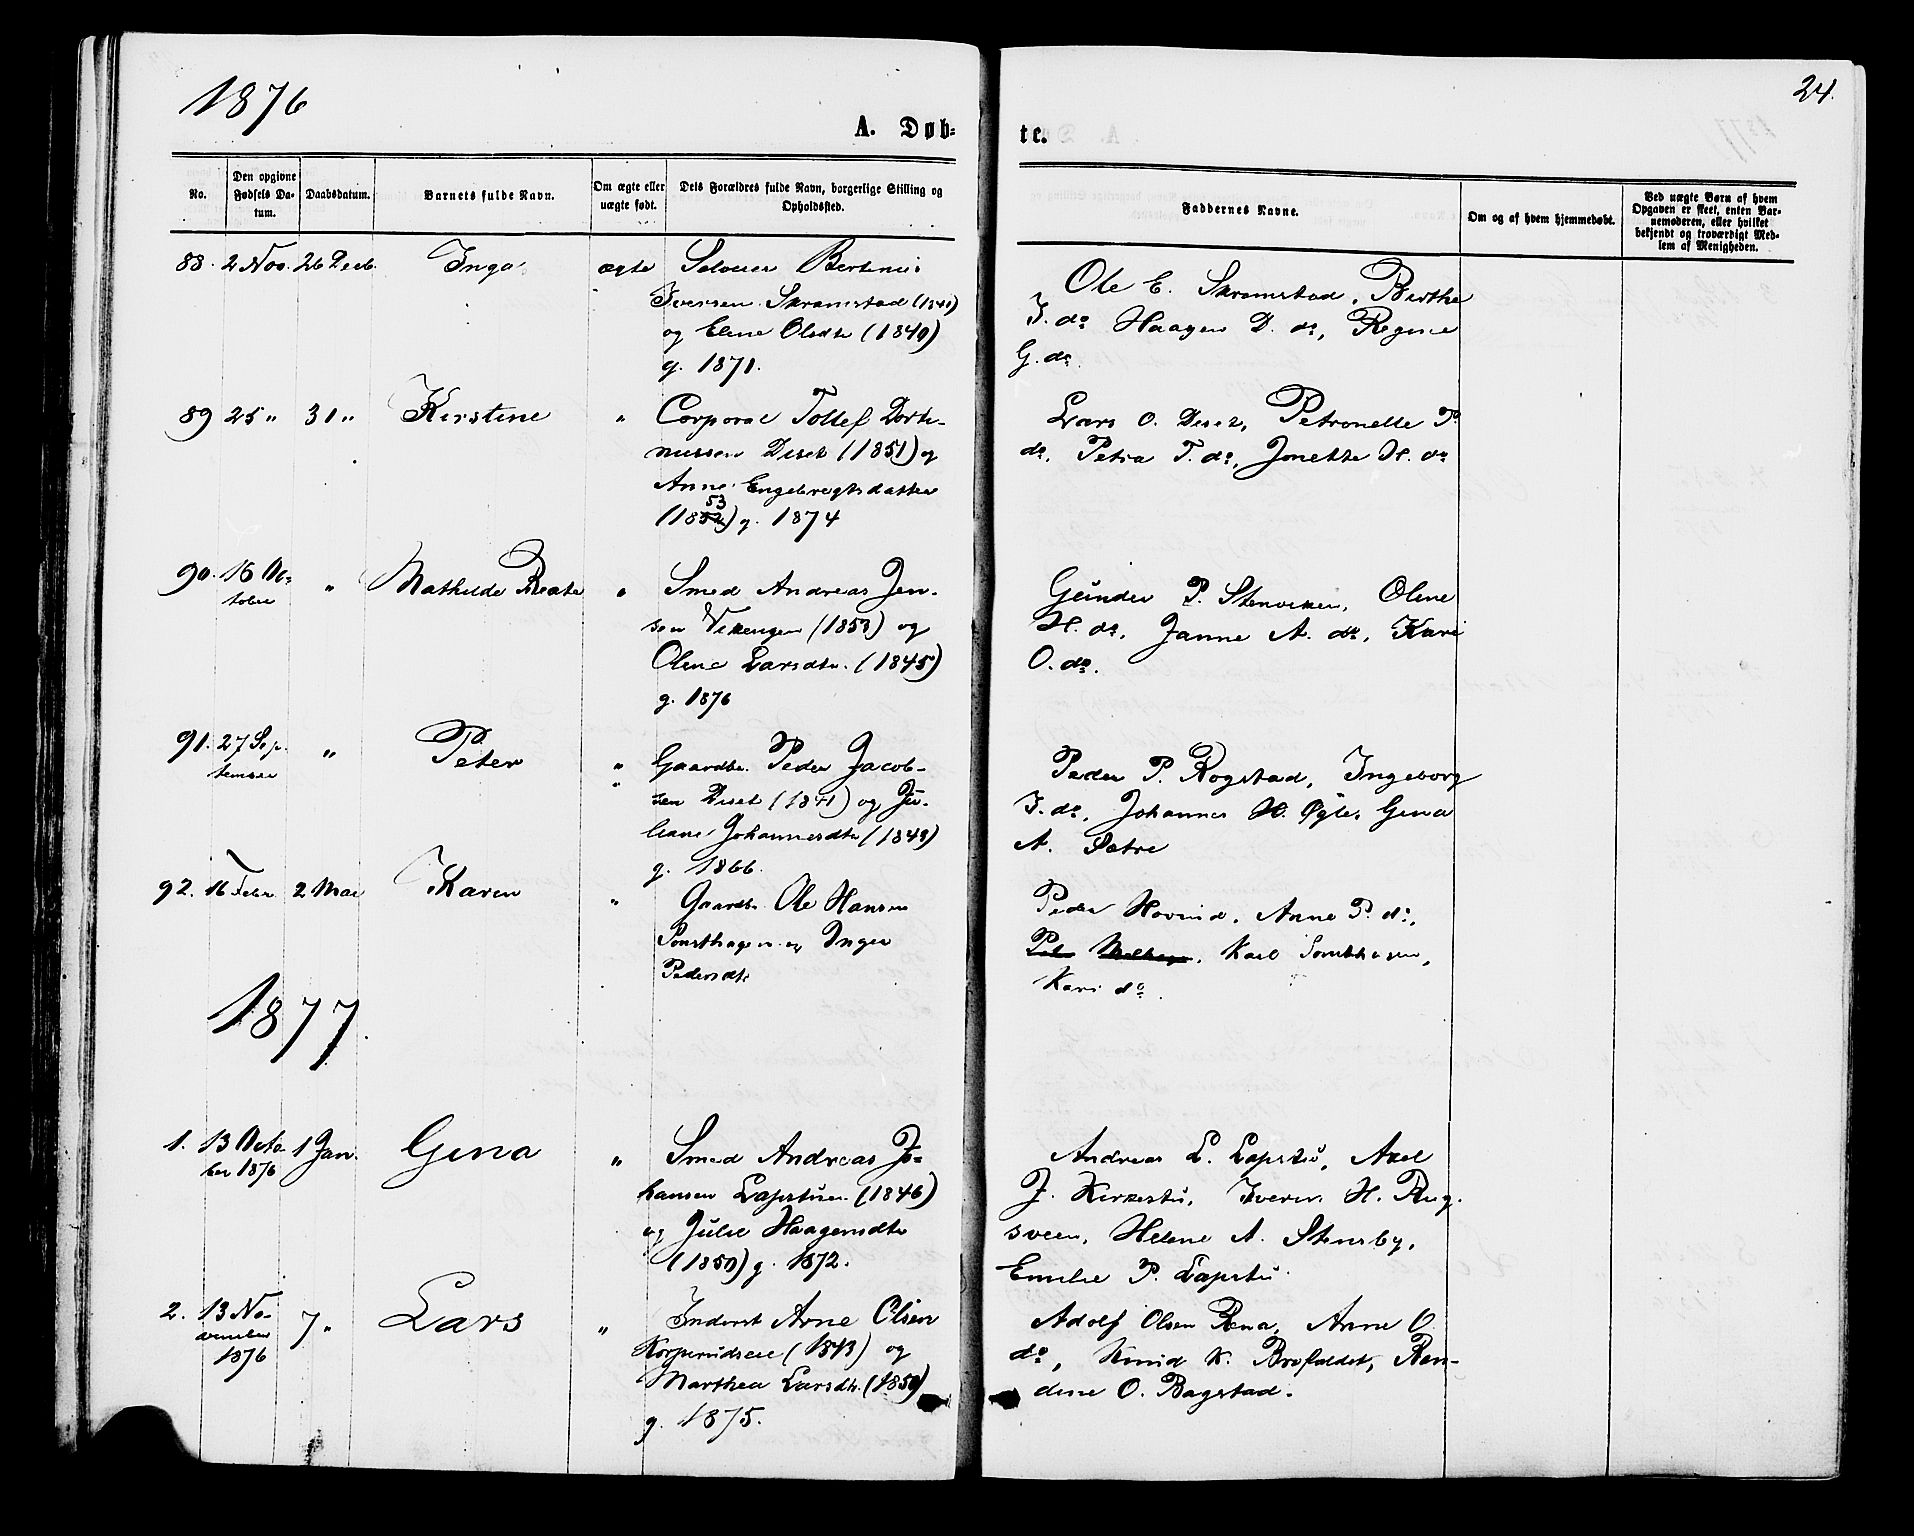 1876
24.
A. Døb-
te.
No.
Den opgivne
Fødsels Da-
tum.
Daabsdatum.
Barnets fulde Navn.
Om ægte eller
uægte født.
Dets Forældres fulde Navn, borgerlige Stilling og
Opholdssted.
Faddernes Navne.
Om og af hvem hjemmedøbt.
Ved uægte Børn af hvem
Opgaven er skeet, enten Bar-
nemoderen, eller hvilket
bekjendt og troværdigt Med-
lem af Menigheden.
88. 2 Nov. 26 Decb. Inga ægte Selveier Bertinus
Iversen Skramstad (1848)
og Eline Olsdtr (1840)
g. 1871.
Ole E. Skramstad, Berthe
I. do Haagen D. do, Regine
G. do.
89 25 " 31 " Kirstine " Corporal Tollef Dorte-
nussen Diset (1851) og
Anne Engebregtsdatter
(1852) 53 g. 1874
Lars O. Diset, Petronelle P.
do, Petra T. do, Jonette H. do
90. 16 Oc-
tober " Mathilde Beate " Smed Andreas Jen-
sen Vikengen (1853) og
Oline Larsdtr. (1845)
g. 1876
Gunder P. Stenviken, Oline
H. do, Janne A. do, Kari
O. do.
91. 27 Sep-
tember " Peter " Gaardbr. Peder Jacob-
sen Diset (1841) og Ju-
liane Johannesdtr (1843)
g. 1866.
Peder P. Rogstad, Ingeborg
I. do, Johannes H. Øgle, Gina
A. Sætre
92. 16 Febr 2 Mai Karen " Gaardbr. Ole Hansen
og Inger
Pedersdtr
Peder Hovind, Anne P. do,
Karl
Kari do.
1877.
1. 13 Octo-
ber 1876 1 Jan. Gina " Smed Andreas Jo-
hansen Lapstuen (1846)
og Julie Haagensdtr
(1850) g. 1872.
Andreas L. Lapstu, Axel
J. Kirkestu, Iver H. Rug-
sveen, Helene A. Stensby,
Emilie P. Lapstu
2. 13 No-
vember
1876 7 " Lars " Inderst Arne Olsen
Korperudseie (1843) og
Marthea Larsdtr. (1850)
g. 1875.
Adolf Olsen Rena, Anne O.
do, Knud K. Brofaldet, Ran-
dine O. Bagstad.